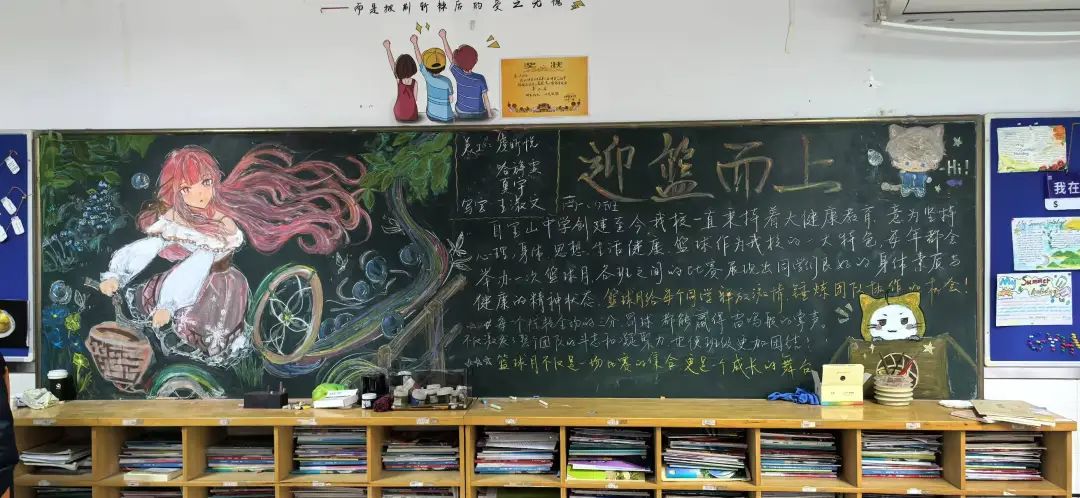 而是披荆斩棘后的受之无愧
奖状
美工：
写字：
迎篮而上
Hi!
高一
自宝山中学创建至今，我校一直秉持着大健康教育，意为坚持
心理，身体，思想，生活健康，篮球作为我校的一大特色，每年都会
举办一次篮球月，各班之间的比赛展现出同学们良好的身体素质与
健康的精神状态，篮球月给每个同学释放激情，锤炼团队协作的机会！
每个 三分，罚球，都能赢得 的掌声。
团队的 凝聚力，也使班级更加团结！
篮球月不仅是一场比赛的集合，更是一个成长的舞台
我在
S
My Summer Holiday
My Summer Holiday